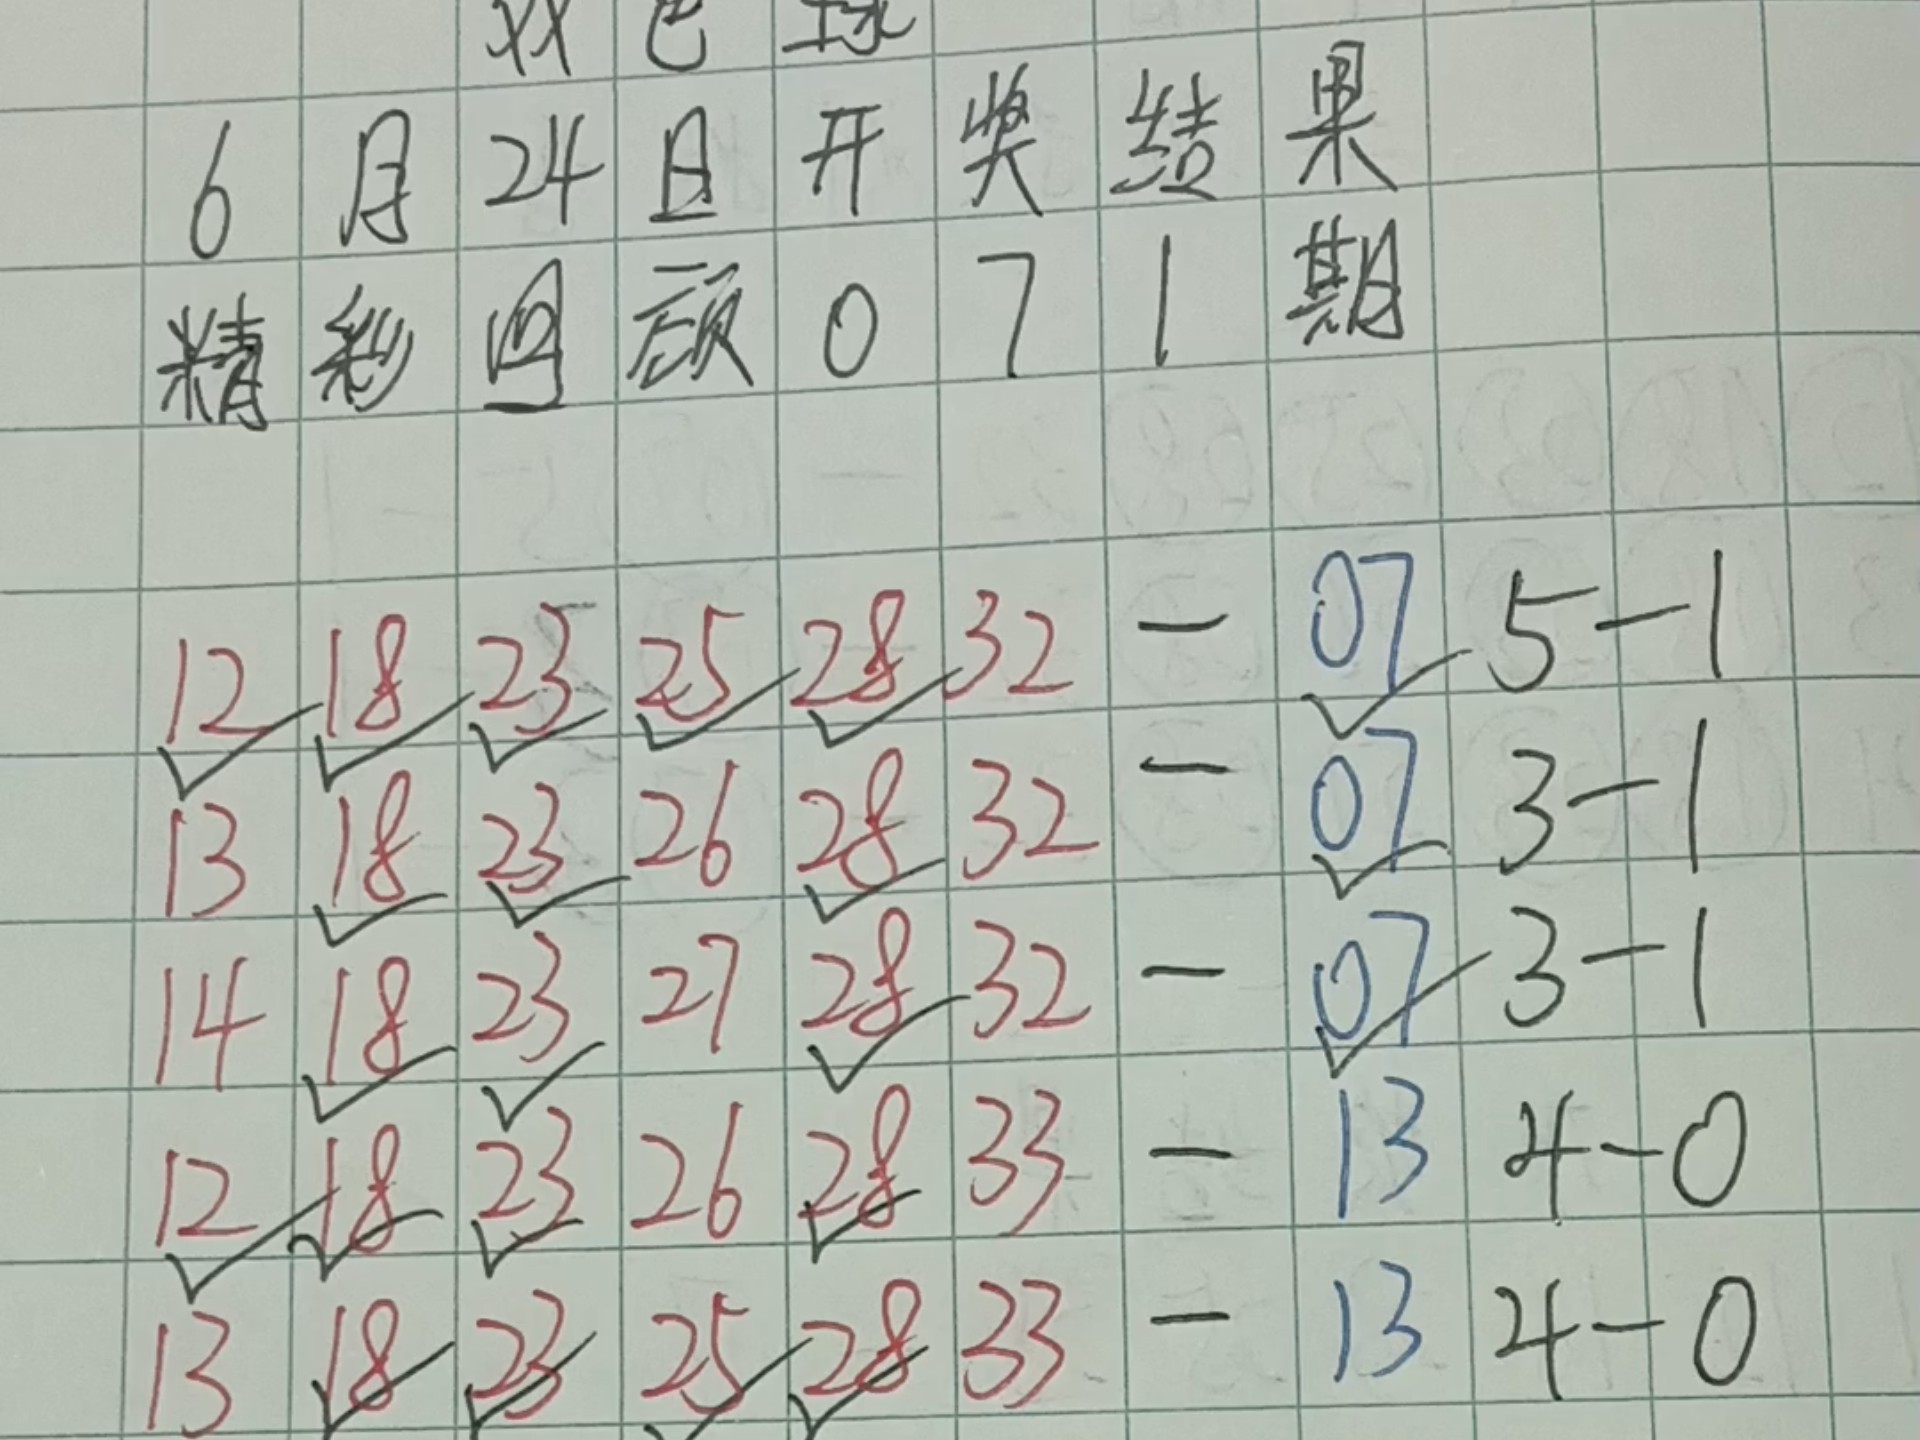 双色球
6月24日开奖结果
精彩回顾071期
12 18 23 25 28 32 - 07 5-1
13 18 23 26 28 32 - 07 3-1
14 18 23 27 28 32 - 07 3-1
12 18 23 26 28 33 - 13 4-0
13 18 23 25 28 33 - 13 4-0